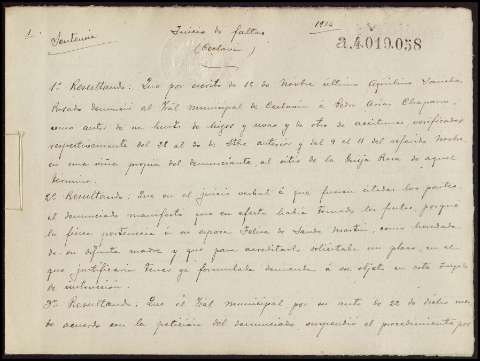 1.
Sentencia
Juicio de faltas
(Ceclavin)
1914
a.4.019.058
1º Resultando: Que por escrito de 15 de Novbre último Aquilino Sancho
Rosado denunció al Fral municipal de Ceclavin á Pedro Arias Chaparro,
como autor de un hurto de higos y uvas y de otro de aceitunas verificados
respectivamente del 28 al 30 de Stbre anterior y del 9 al 11 del referido Novbre
en una viña propia del denunciante, al sitio de la Guija Rasa de aquel
término.
2º Resultando: Que en el juicio verbal á que fueron citadas las partes,
el denunciado manifestó que en efecto había tomado los frutos, porque
la finca pertenecía á su esposa Felisa de Sande Martin, como heredada
de su difunta madre y que para acreditarlo solicitaba un plazo, en el
que justificaria tener ya formulada demanda á su objeto en este Juzgado
de instrucción.
3º Resultando: Que el Fral municipal por su auto de 22 de dicho mes
de acuerdo con la petición del denunciado, suspendió el procedimiento por